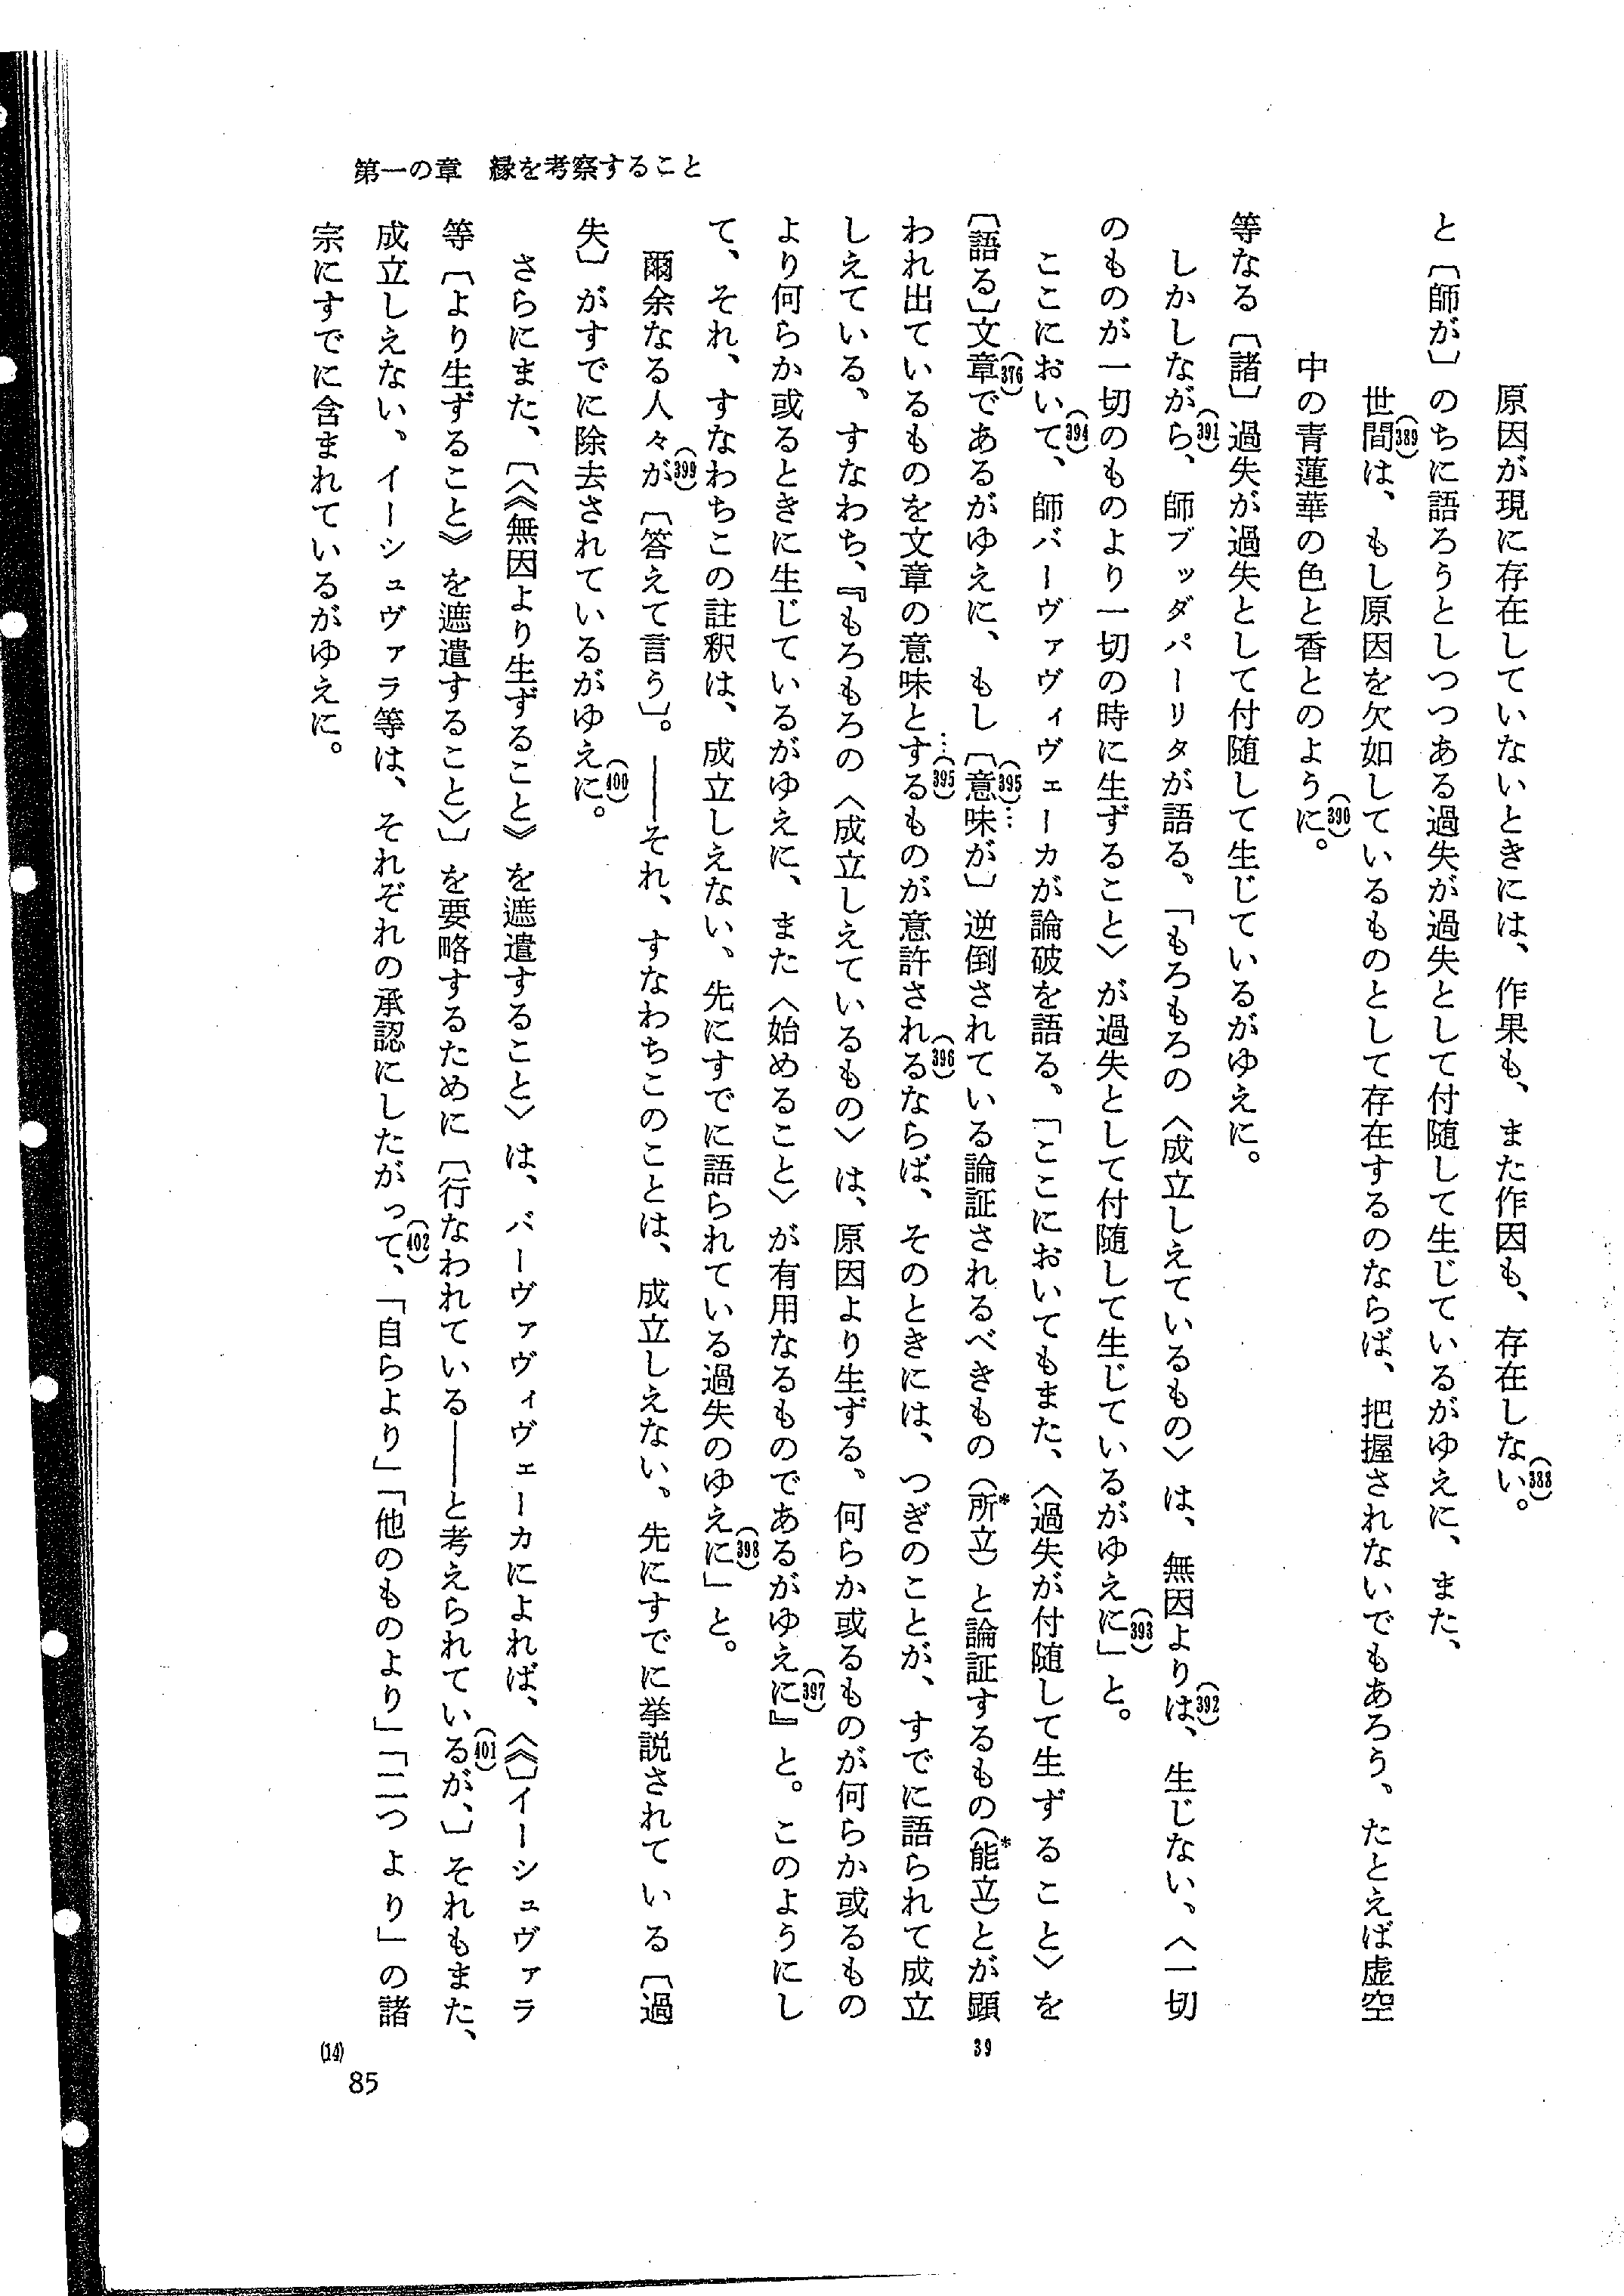 第一の章　縁を考察すること
原因が現に存在していないときには、作果も、また作因も、存在しない(388)。
と〔師が〕のちに語ろうとしつつある過失が過失として付随して生じているがゆえに、また、
世間(389)は、もし原因を欠如しているものとして存在するのならば、把握されないでもあろう、たとえば虚空
中の青蓮華の色と香とのように(390)。
等なる〔諸〕過失が過失として付随して生じているがゆえに。
しかしながら(391)、師ブッダパーリタが語る、「もろもろの〈成立しえているもの〉は、無因よりは(392)、生じない、〈一切
のものが一切のものより一切の時に生ずること〉が過失として付随して生じているがゆえに(393)」と。
ここにおいて(394)、師バーヴァヴィヴェーカが論破を語る、「ここにおいてもまた、〈過失が付随して生ずること〉を
〔語る〕文章(376)であるがゆえに、もし〔意味(395)…が〕逆倒されている論証されるべきもの（所立*）と論証するもの（能立*）とが顕
われ出ているものを文章の意味とする…(395)ものが意許される(396)ならば、そのときには、つぎのことが、すでに語られて成立
しえている、すなわち、『もろもろの〈成立しえているもの〉は、原因より生ずる、何らか或るものが何らか或るもの
より何らか或るときに生じているがゆえに、また〈始めること〉が有用なるものであるがゆえに(397)』と。このようにし
て、それ、すなわちこの註釈は、成立しえない、先にすでに語られている過失のゆえに(398)」と。
爾余なる人々が(399)〔答えて言う〕。――それ、すなわちこのことは、成立しえない。先にすでに挙説されている〔過
失〕がすでに除去されているがゆえに(400)。
さらにまた、〔〈《無因より生ずること》を遮遣すること〉は、バーヴァヴィヴェーカによれば、〈《〕イーシュヴァラ
等〔より生ずること》を遮遣すること〉〕を要略するために〔行なわれている――と考えられているが(401)、〕それもまた、
成立しえない、イーシュヴァラ等は、それぞれの承認にしたがって(402)、「自らより」「他のものより」「二つより」の諸
宗にすでに含まれているがゆえに。
39
(14)
85